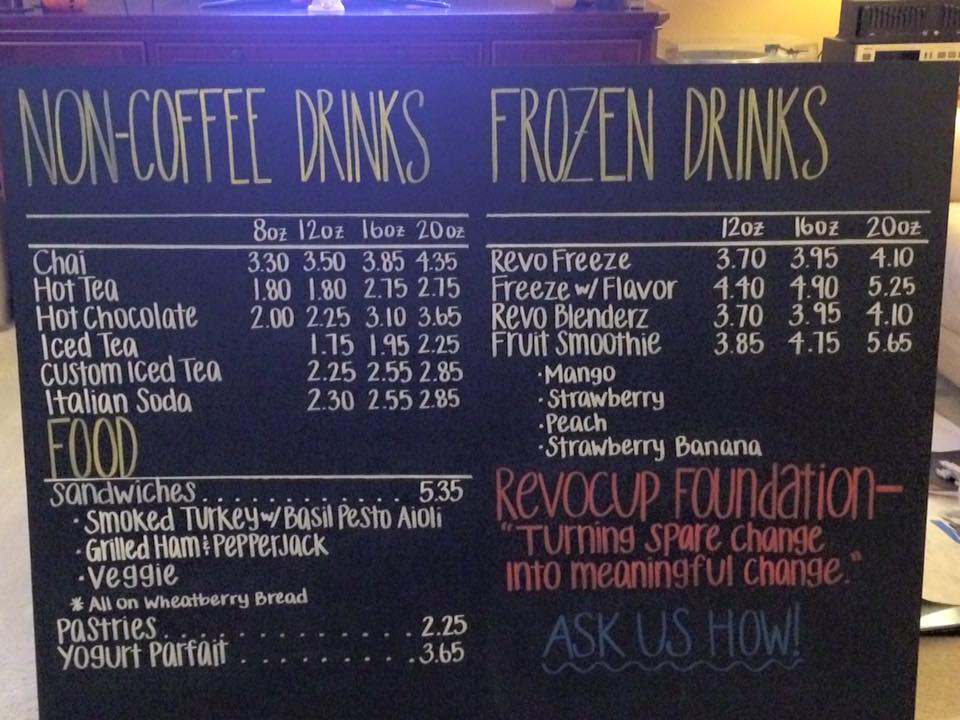 NON-COFFEE DRINKS
8oz 12oz 16oz 20oz
Chai 3.30 3.50 3.85 4.35
Hot Tea 1.80 1.80 2.75 2.75
Hot Chocolate 2.00 2.25 3.10 3.65
Iced Tea 1.75 1.95 2.25
Custom Iced Tea 2.25 2.55 2.85
Italian Soda 2.30 2.55 2.85
FOOD
Sandwiches . . . . . . . . . . . . 5.35
· Smoked Turkey w/ Basil Pesto Aioli
· Grilled Ham & PepperJack
· Veggie
* All on Wheatberry Bread
Pastries . . . . . . . . . . . . . 2.25
Yogurt Parfait . . . . . . . . . . 3.65
FROZEN DRINKS
12oz 16oz 20oz
Revo Freeze 3.70 3.95 4.10
Freeze w/ Flavor 4.40 4.90 5.25
Revo Blenderz 3.70 3.95 4.10
Fruit Smoothie 3.85 4.75 5.65
· Mango
· Strawberry
· Peach
· Strawberry Banana
REVOCUP FOUNDATION-
"Turning spare change
into meaningful change."
ASK US HOW!